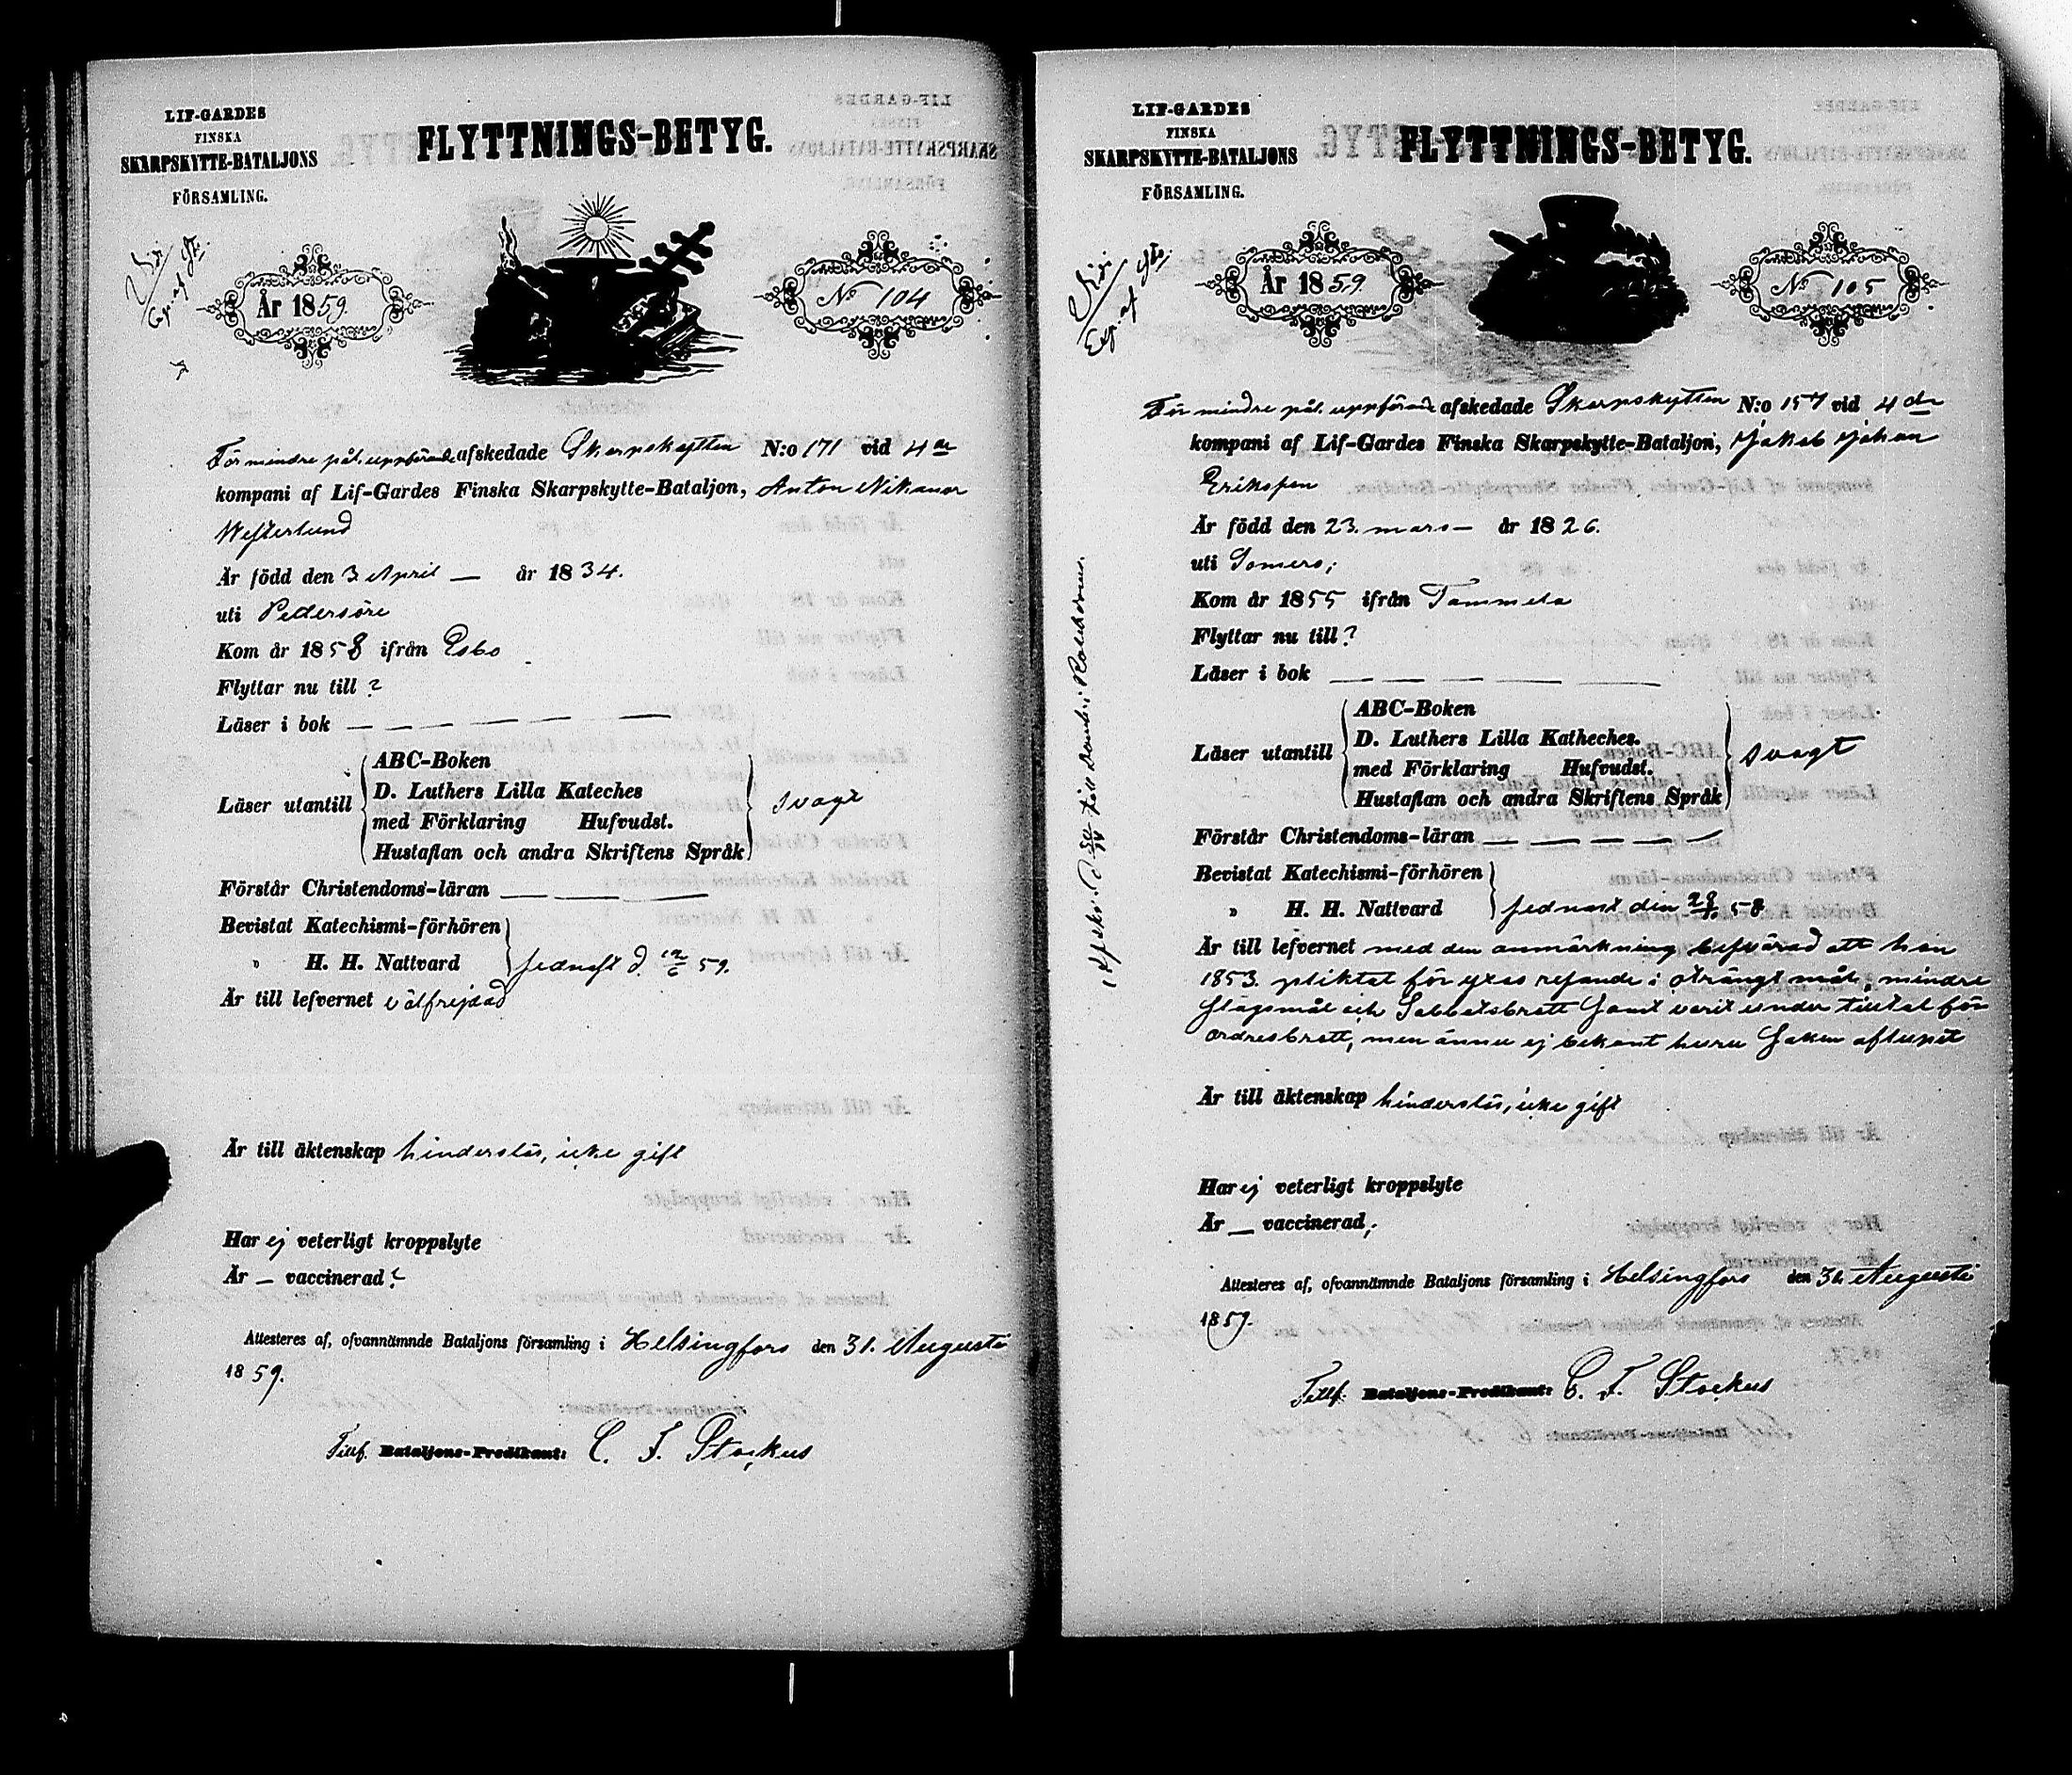 LIF-GARDES
FINSKA
SKARPSKYTTE-BATALJONS
FÖRSAMLING.
FLYTTNINGS-BETYG.
År 1859.
No 104
För mindre pål. uppförande afskedade Skarpskytten N:o 171 vid 4de
kompani af Lif-Gardes Finska Skarpskytte-Bataljon, Anton Nikanor
Westerlund
Är född den 3 April — år 1834.
uti Pedersöre
Kom år 1858 ifrån Esbo
Flyttar nu till?
Läser i bok — — — — —
ABC-Boken
D. Luthers Lilla Kateches
Läser utantill med Förklaring Hufvudst. svagt
Hustaflan och andra Skriftens Språk
Förstår Christendoms-läran — — —
Bevistat Katechismi-förhören
" H. H. Nattvard sednast d. 12/6 59.
Är till lefvernet välfrejdad
Är till äktenskap hinderslös, icke gift
Har ej veterligt kroppslyte
Är — vaccinerad?
Attesteres af, ofvannämnde Bataljons församling i Helsingfors den 31. Augusti
1859.
Tillf. Bataljons-Predikant: C. F. Stockus
LIF-GARDES
FINSKA
SKARPSKYTTE-BATALJONS
FÖRSAMLING.
FLYTTNINGS-BETYG.
År 1859.
No 105
För mindre pål. uppförande afskedade Skarpskytten N:o 157 vid 4de
kompani af Lif-Gardes Finska Skarpskytte-Bataljon, Jakob Johan
Eriksson
Är född den 23. mars — år 1826.
uti Somero;
Kom år 1855 ifrån Tammela
Flyttar nu till?
Läser i bok — — — — —
ABC-Boken
D. Luthers Lilla Katheches.
Läser utantill med Förklaring Hufvudst. svagt
Hustaflan och andra Skriftens Språk
Förstår Christendoms-läran — — — — —
Bevistat Katechismi-förhören
" H. H. Nattvard sednast den 58
Är till lefvernet med den anmärkning besvärad att han
1853. pliktat för resande i oträngt mål, mindre
slagsmål och Sabbatsbrott samt varit under tilltal för
ordresbrott, men ännu ej bekant huru saken aflupit
Är till äktenskap hinderslös, icke gift
Har ej veterligt kroppslyte
Är — vaccinerad;
Attesteres af, ofvannämnde Bataljons församling i Helsingfors den 31 Augusti
1859.
Tillf. Bataljons-Predikant: C. F. Stockus